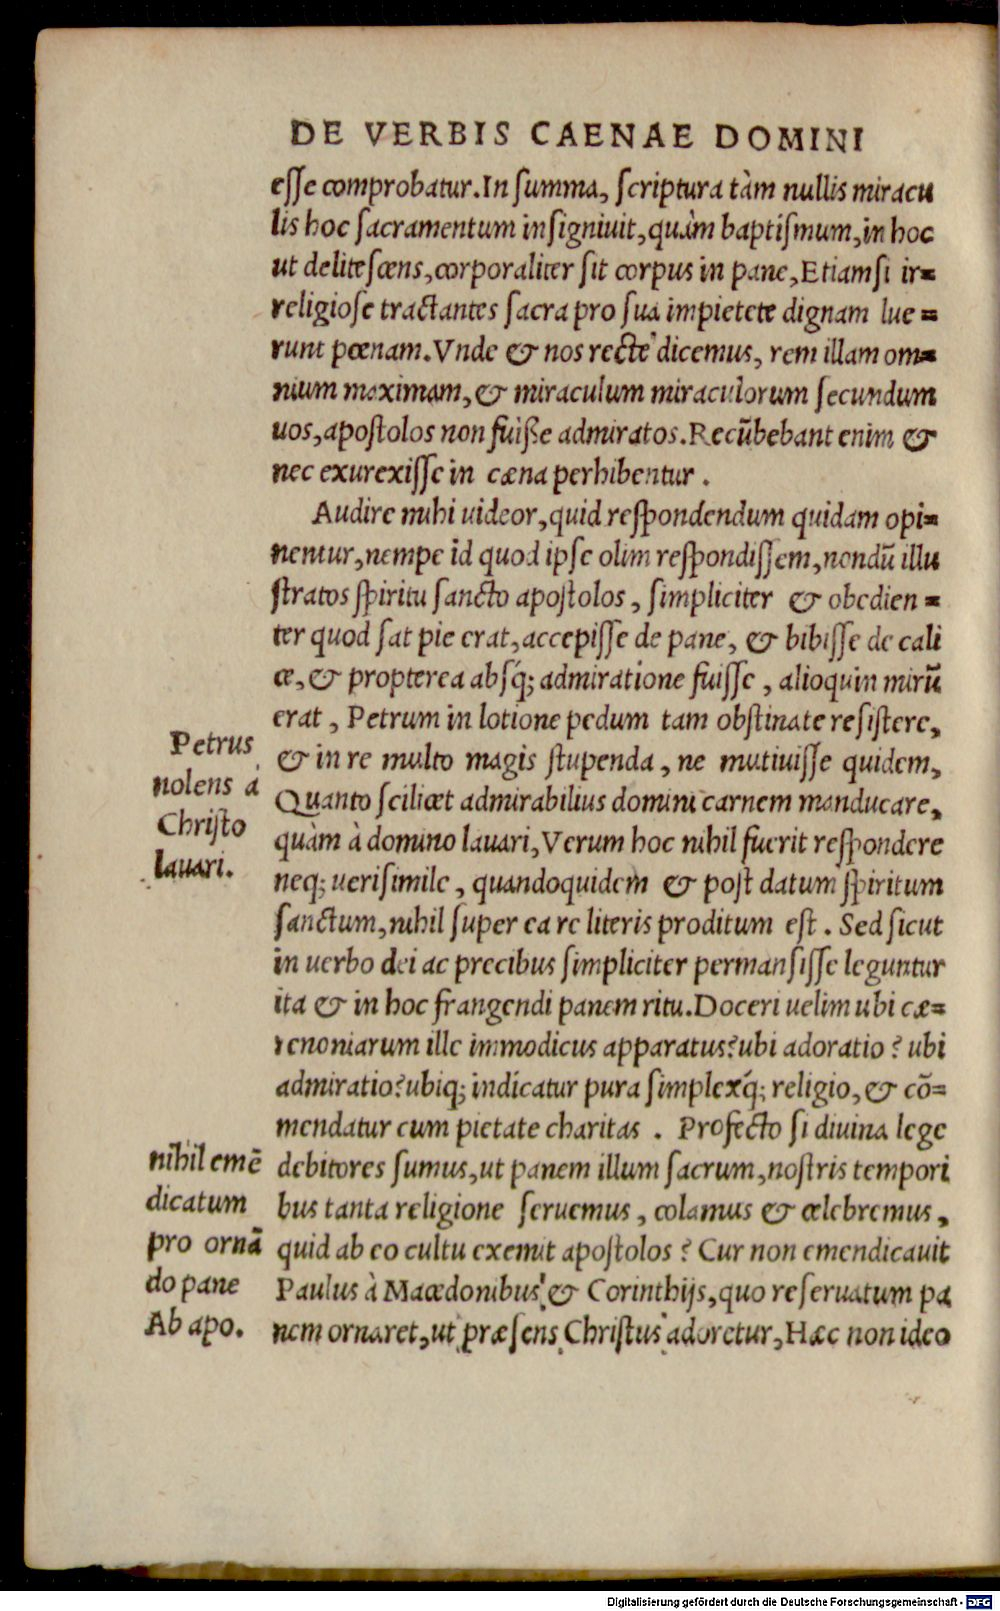 DE VERBIS CAENAE DOMINI
esse comprobatur. In summa, scriptura tàm nullis miracu
lis hoc sacramentum insigniuit, quàm baptismum, in hoc
ut delitescens, corporaliter sit corpus in pane, Etiamsi ir=
religiose tractantes sacra pro sua impietete dignam lue=
runt pœnam. Vnde & nos recte dicemus, rem illam om=
nium maximam, & miraculum miraculorum secundum
uos, apostolos non fuiße admiratos. Recūbebant enim &
nec exurexisse in cæna perhibentur.
Audire mihi uideor, quid respondendum quidam opi=
nentur, nempe id quod ipse olim respondissem, nondū illu
stratos spiritu sancto apostolos, simpliciter & obedien=
ter quod sat pie erat, accepisse de pane, & bibisse de cali
ce, & propterea absq́; admiratione fuisse, alioquin mirū
erat, Petrum in lotione pedum tam obstinate resistere,
& in re multo magis stupenda, ne mutiuisse quidem,
Quanto scilicet admirabilius domini carnem manducare,
quàm à domino lauari, Verum hoc nihil fuerit respondere
neq; uerisimile, quandoquidem & post datum spiritum
sanctum, nihil super ea re literis proditum est. Sed sicut
in uerbo dei ac precibus simpliciter permansisse leguntur
ita & in hoc frangendi panem ritu. Doceri uelim ubi cæ=
renoniarum ille immodicus apparatus? ubi adoratio? ubi
admiratio? ubiq; indicatur pura simplexq́; religio, & cō=
mendatur cum pietate charitas. Profecto si diuina lege
debitores sumus, ut panem illum sacrum, nostris tempori
bus tanta religione seruemus, colamus & celebremus,
quid ab eo cultu exemit apostolos? Cur non emendicauit
Paulus à Macedonibus, & Corinthijs, quo reseruatum pa
nem ornaret, ut præsens Christus adoretur, Hæc non ideo
Petrus
nolens á
Christo
lauari.
nihil emē
dicatum
pro ornā
do pane
Ab apo.
Digitalisierung gefördert durch die Deutsche Forschungsgemeinschaft - DFG